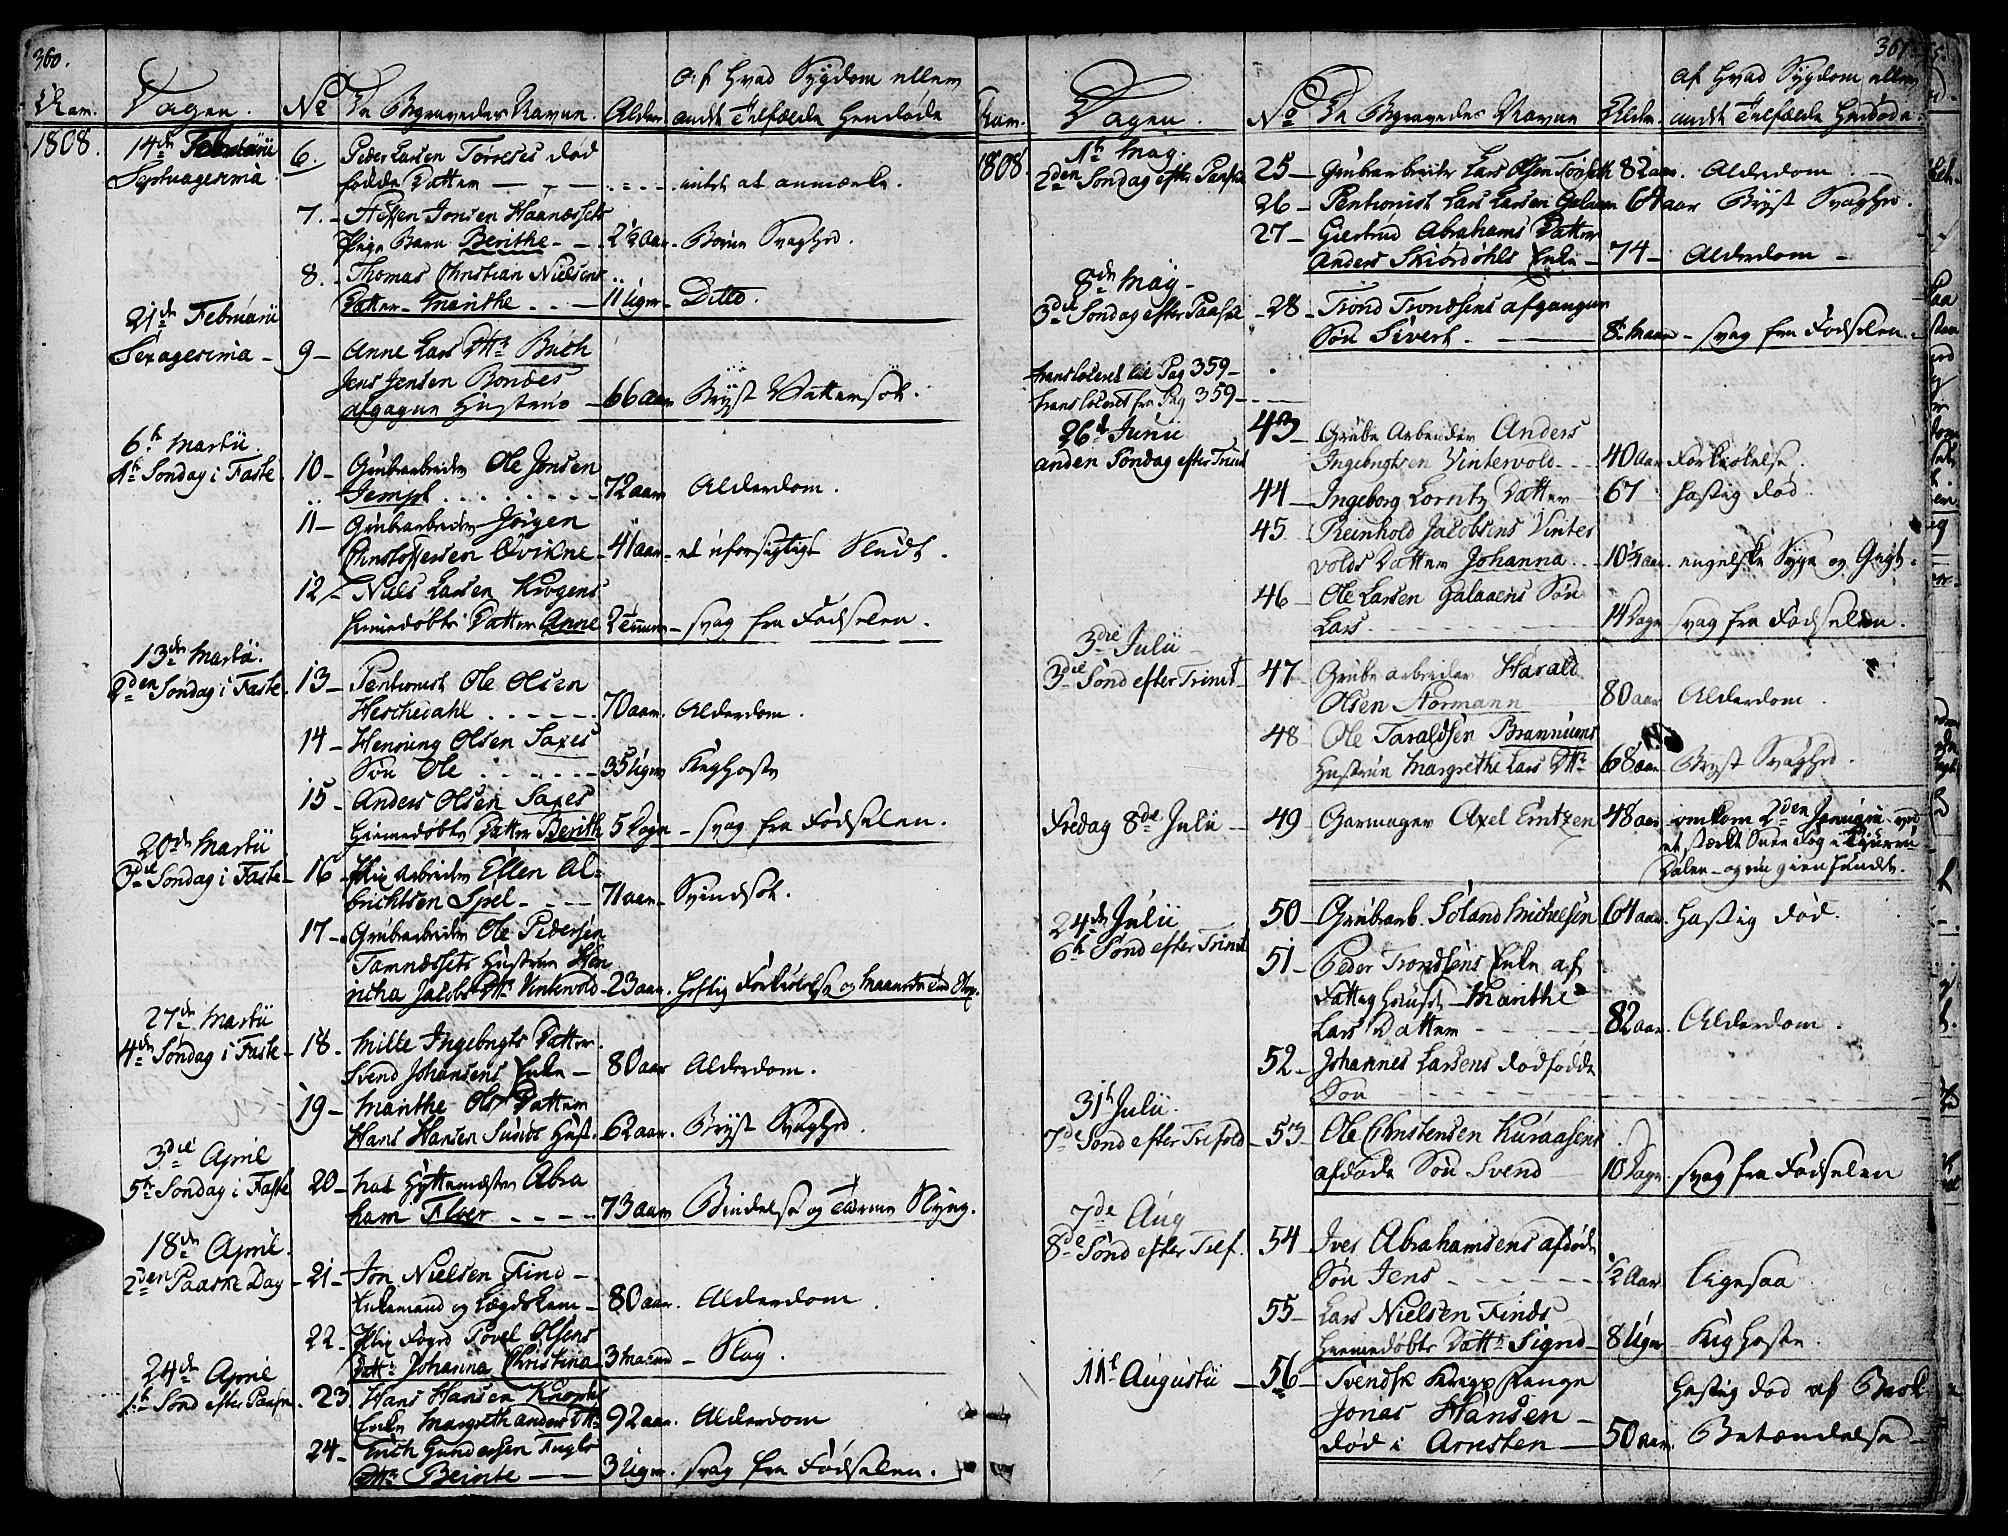 360.
Aar.
Dagen.
No
De Begravedes Navne.
Alder
Af hvad Sygdom eller
andet Tilfælde hendøde
1808.
14de Februarii
Septuagesima
6.
Peder Larsen Torreses død
fødde Datter
intet at anmærke.
7.
Steffen Jonsen Haanæssets
Pige Barn Berithe
2½ aar
Børne Svaghed.
8.
Thomas Christian Nielsens
Datter Marithe
11 Uger
Ditto.
21de Februarii
Sexagesima
9
Anne Lars Dtr Buch
Jens Jensen Bondes
afgagne Hustrue
66 aar
Bryst Vattersot.
6te Martii.
1ste Søndag i Faste
10
Grubearbeider Ole Jonsen
Tempel
72 aar
Alderdom.
11
Grubearbeider Jørgen
Christoffersen Qvikne
41 aar
et uforsigtigt Skudt.
12
Niels Larsen Krogens
hiemedøbte Datter Anne
2 Timer
svag fra Fødselen.
13de Martii.
2den Søndag i Faste.
13
Pentionist Ole Olsen
Heschedahl
70 aar.
Alderdom.
14
Henning Olsen Saxes
Søn Ole
35 Uger
Kighoste
15
Anders Olsen Saxes
hiemedøbte Datter Berith
5 Dage
svag fra Fødselen.
20de Martii
3die Søndag i Faste
16
Elling Al-
brichtsen Spel
71 aar
Svindsot.
17
Grubearbeider Ole Pedersen
Tamnæssets Hustrue Hen
richa Jacobs Dtr Vintervold
23 aar.
heftig Forkiølelse og
27de Martii
4de Søndag i Faste
18
Mille Ingebrigts Datter
Svend Johansens Enke
80 aar
Alderdom.
19
Marithe Ols Datter
Hans Hansen Sunds Hust.
62 aar.
Bryst Svaghed.
3die April
5te Søndag i Faste
20
Hytteméster Abra
ham Floer
73 aar
Bindelse og
18de April.
2den Paaske Dag
21
Jon Nielsen Find
Enkemand og Lægdslem
80 aar.
Alderdom
22
Foged Povel Olsens
Dattr Johanna Christina
3 Maaned
Slag.
24de April
1ste Sønd efter Paaske.
23
Hans Hansen
Enke Margreth Anders Dtr
92 aar.
Alderdom
24
Erich Gundersen Fugls
Dtr Berithe
3 Uger.
svag fra Fødselen.
361.
Aar.
Dagen.
No
De Begravedes Navne
Alder.
af hvad Sygdom eller
andet Tilfælde hendøde.
1808.
1te May.
2den Søndag efter Paaske
25
Grubearbeider Lars Olsen Tønseth
82 aar.
Alderdom.
26
Pentionist Lars Larsen Galaaen
64 aar
Bryst Svaghed.
27
Giertrud Abrahams Datter
Anders Skiørdahls Enke
74
Alderdom
8de May
3die Søndag efter Paaske
28
Trond Trondsens afgangne
Søn Sivert.
8te Maan
svag fra Fødselen.
transloceret til Pag 359
transloceret fra Pag 359
26de Junii
anden Søndag efter Trinit
43
Grube Arbeider Anders
Ingebrigtsen Vintervold
40 Aar
Forkiølelse.
44
Ingeborg Lorntz Datter
67
hastig død.
45
Reinhold Jacobsens Vinter
volds Datter Johanna
10½ aar.
engelske Syge og Gigt.
46
Ole Larsen Galaaens Søn
Lars
14 Dage
svag fra Fødselen.
3die Julii
3die Sønd efter Trinit
47
Grube arbeider Harald
Olsen Normann
80 aar
Alderdom.
48
Ole Taraldsen Brannums
Hustrue Margrethe Lars Dtr
68 aar
Bryst Svaghed.
Fredag 8de Julii
49
Garmager Axel Erntzen
48 aar
omkom 2den Januarii ved
et stærkt Snee Fog i
Dalen og nu gienfundet.
24de Julii
6te Sønd efter Trinit
50
Grubearb. Soland Michelsen
64 aar
hastig død.
51
Peder Trondsens Enke af
Fattig Huuset Marithe
Lars Datter
82 aar.
Alderdom.
52
Johannes Larsens dødfødde
Søn
31te Julii.
7de Sønd efter Trefold
53
Ole Christensen Kuraasens
afdøde Søn Svend
10 Dage.
svag fra Fødselen
7de Aug
8de Sønd efter Tref.
54
Iver Abrahamsens afdøde
Søn Jens
½ Aar
ligesaa
55
Lars Nielsen Finds
hiemedøbte Dattr Sigrid
8 Uger
Kighoste.
11te Augustii
56
Svendsk Krigs Fange
Jonas Hansen
død i Arresten
50 aar.
hastig død af
Betændelse